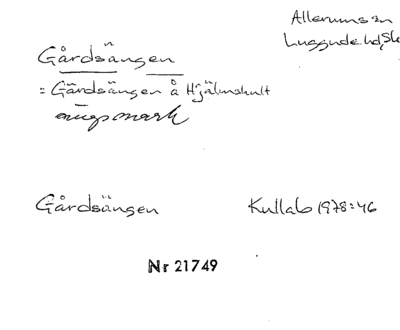 Allerums sn
Luggude hd, Sk
Gårdsängen
= Gårdsängen å Hjälmshult
ängsmark
Gårdsängen Kullab 1978:46
Nr 21749